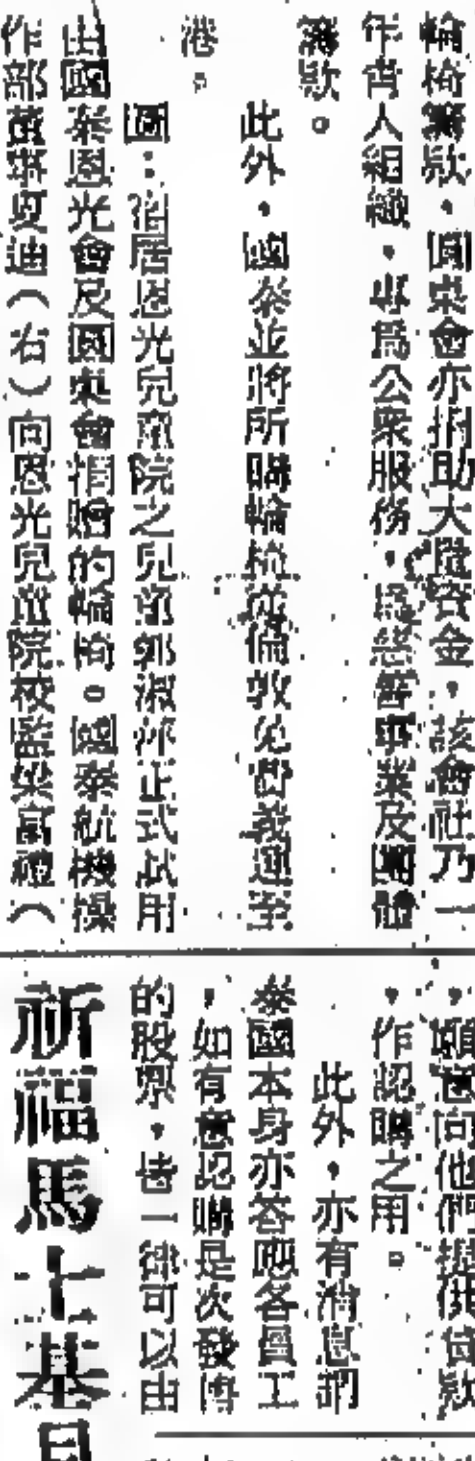 輪椅籌款，圓桌會亦捐助大量資金，該會社乃一
年青人組織，專爲公衆服務，爲慈善事業及團體
籌款。
此外，國泰並將所購輪椅從倫敦免費義運至
港。
圖：泊居恩光兒童院之兒童郭淑萍正式試用
由國泰恩光會及圓桌會捐贈的輪椅。國泰航機操
作部董事夏迪（右）向恩光兒童院校監梁（
，願意向他們提供貸款
，作認購之用。
此外，亦有消息謂
泰國本身亦答應各員工
，如有意認購是次發售
的股票，皆一律可以由
祈福馬士基